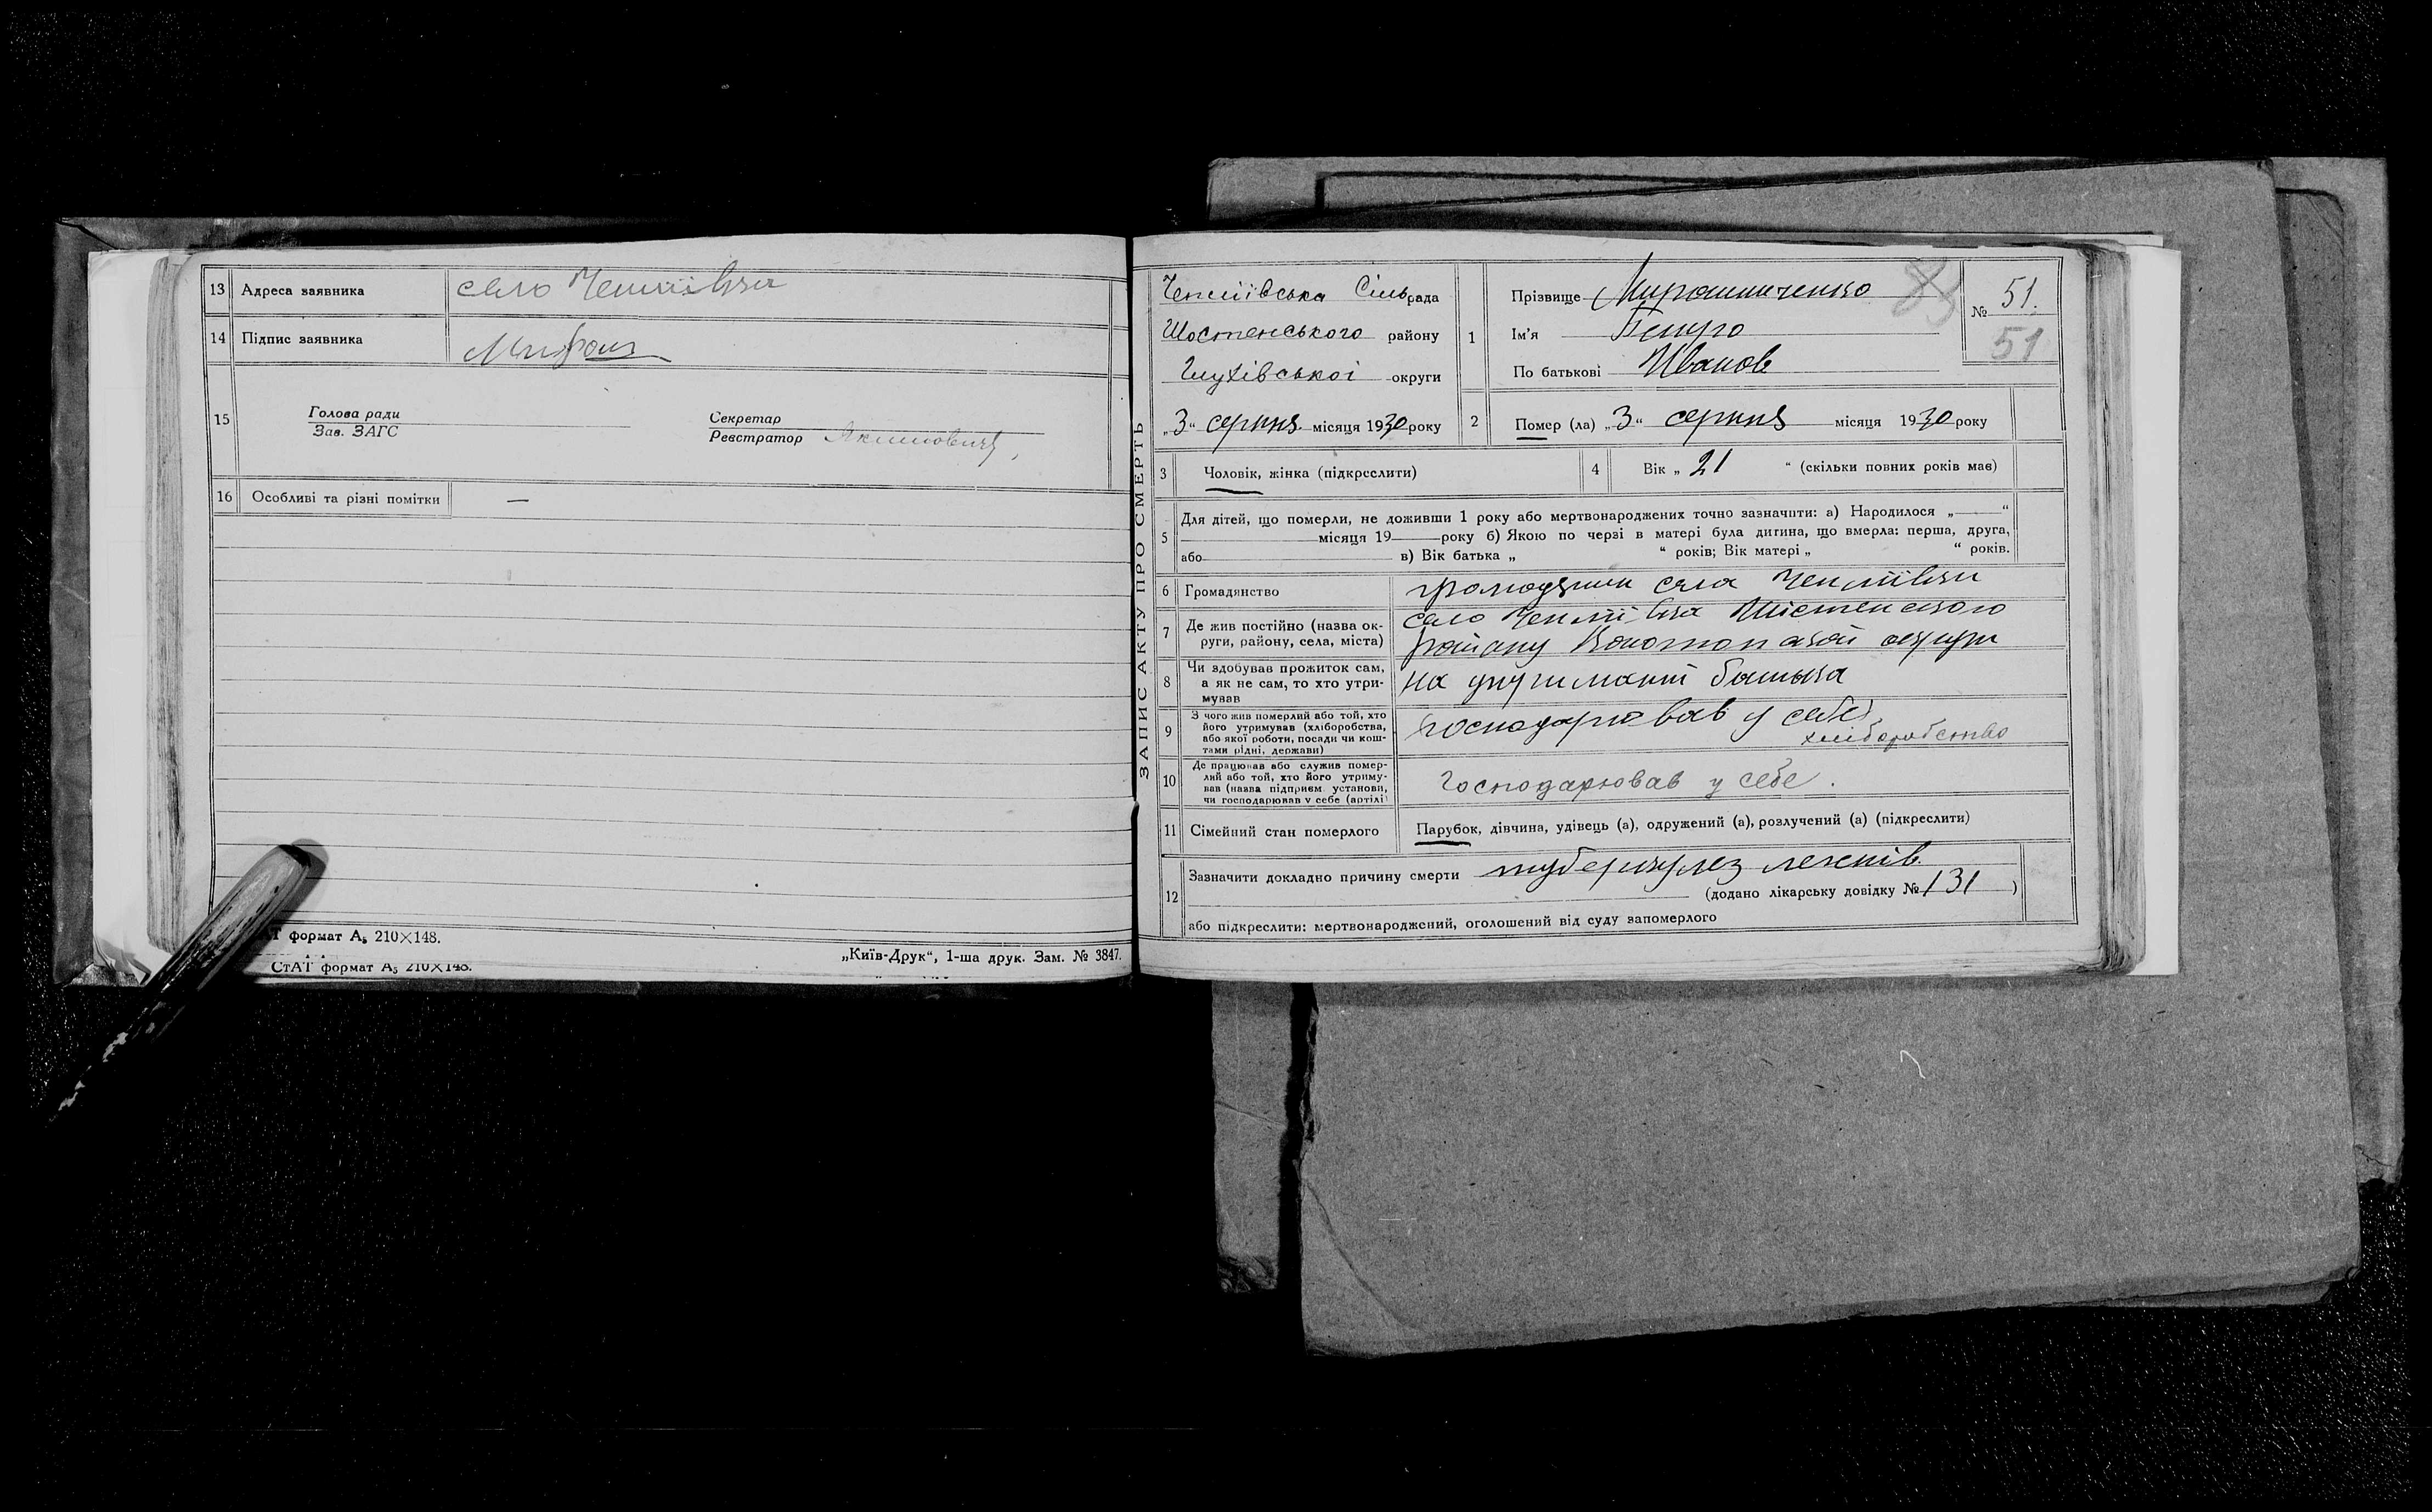 13 Адреса заявника село Чепліївка
14 Підпис заявника
15 Голова ради
Зав. ЗАГС
Секретар
Реєстратор
16 Особливі та різні помітки —
формат А₅ 210×148.
СтАТ формат А₅ 210×148.
„Київ-Друк“, 1-ша друк. Зам. № 3847.
ЗАПИС АКТУ ПРО СМЕРТЬ
Чепліївська Сільрада
Шостенського району
Глухівської округи
„3“ серпня місяця 1930 року
1 Прізвище Мирошниченко
Ім’я Петро
По батькові Иванов
№ 51.
51
2 Помер (ла) „3“ серпня місяця 1930 року
3 Чоловік, жінка (підкреслити)
4 Вік „ 21 “ (скільки повних років має)
5 Для дітей, що померли, не доживши 1 року або мертвонароджених точно зазначити: а) Народилося „ “
місяця 19 року б) Якою по черзі в матері була дитина, що вмерла: перша, друга,
або в) Вік батька „ “ років; Вік матері „ “ років.
6 Громадянство громодянин села Чепліївки
7 Де жив постійно (назва ок-
руги, району, села, міста)
село Чепліївка Шістенского
району Конотопской округи
8 Чи здобував прожиток сам,
а як не сам, то хто утри-
мував
на утриманні батька
9 З чого жив померлий або той, хто
його утримував (хліборобства,
або якої роботи, посади чи кош-
тами рідні, держави)
господарював у себе,
хліборобство
10 Де працював або служив помер-
лий або той, хто його утриму-
вав (назва підприєм. установи,
чи господарював у себе (артілі)
господарював у себе.
11 Сімейний стан померлого Парубок, дівчина, удівець (а), одружений (а), розлучений (а) (підкреслити)
12 Зазначити докладно причину смерти туберкулез легенів.
(додано лікарську довідку № 131 )
або підкреслити: мертвонароджений, оголошений від суду запомерлого